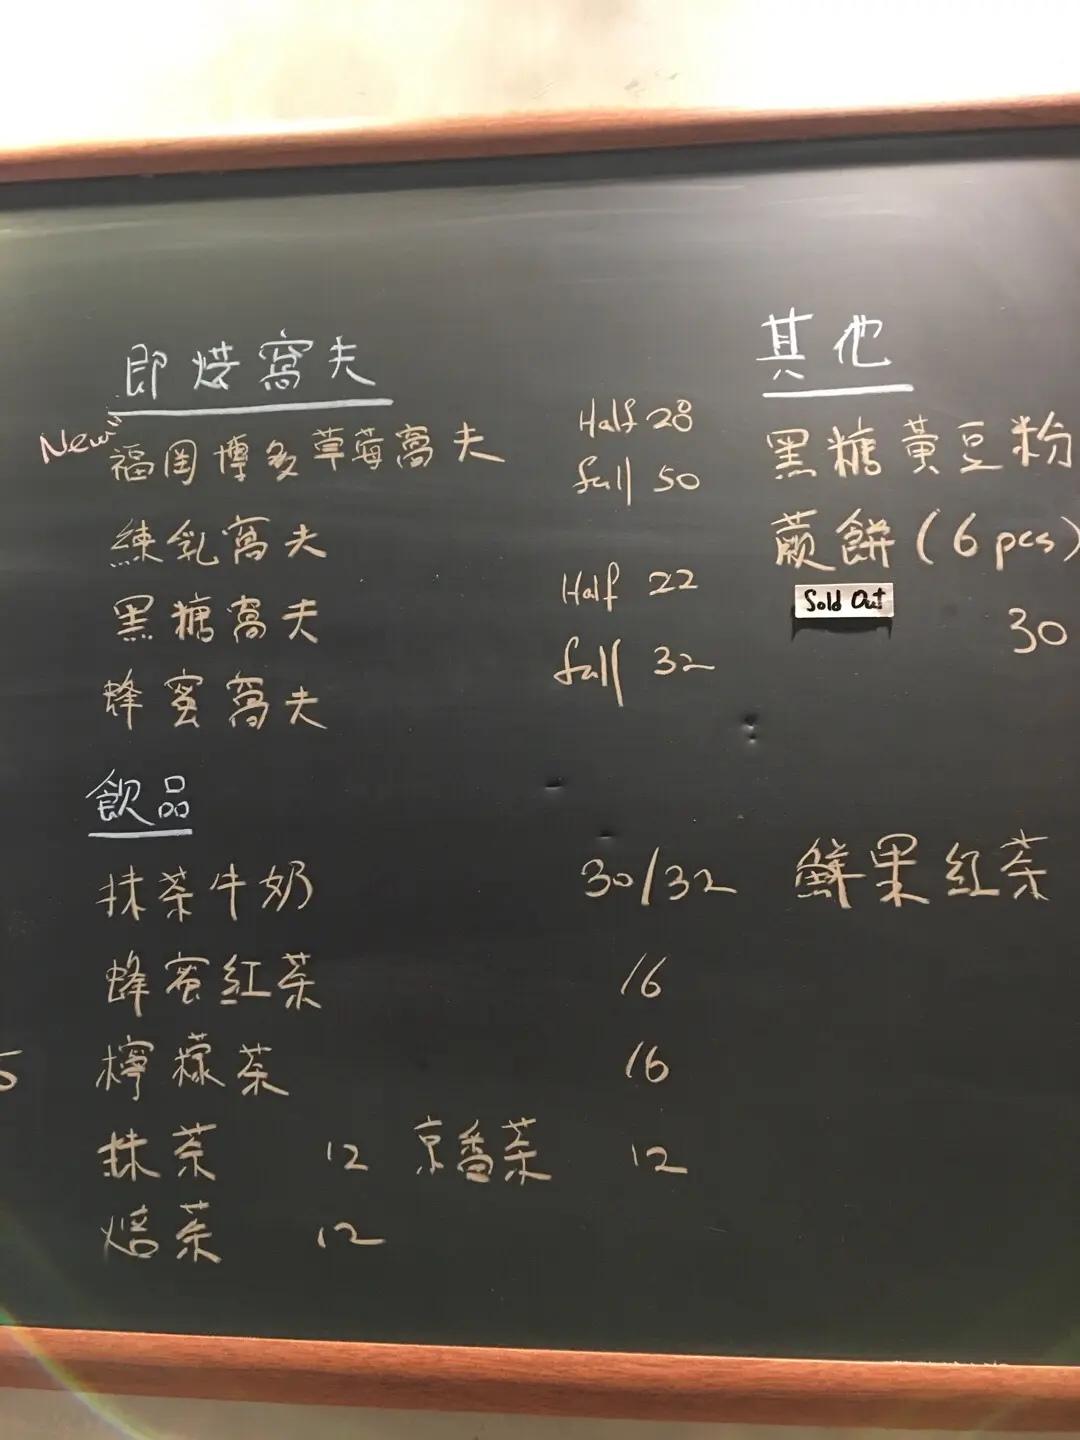 即焙窩夫
New 福岡博多草莓窩夫 Half 28
full 50
練乳窩夫
黑糖窩夫 Half 22
蜂蜜窩夫 full 32
其他
黑糖黃豆粉
蕨餅(6 pcs)
Sold Out
30
飲品
抹茶牛奶 30/32 鮮果紅茶
蜂蜜紅茶 16
檸檬茶 16
抹茶 12 京番茶 12
焙茶 12